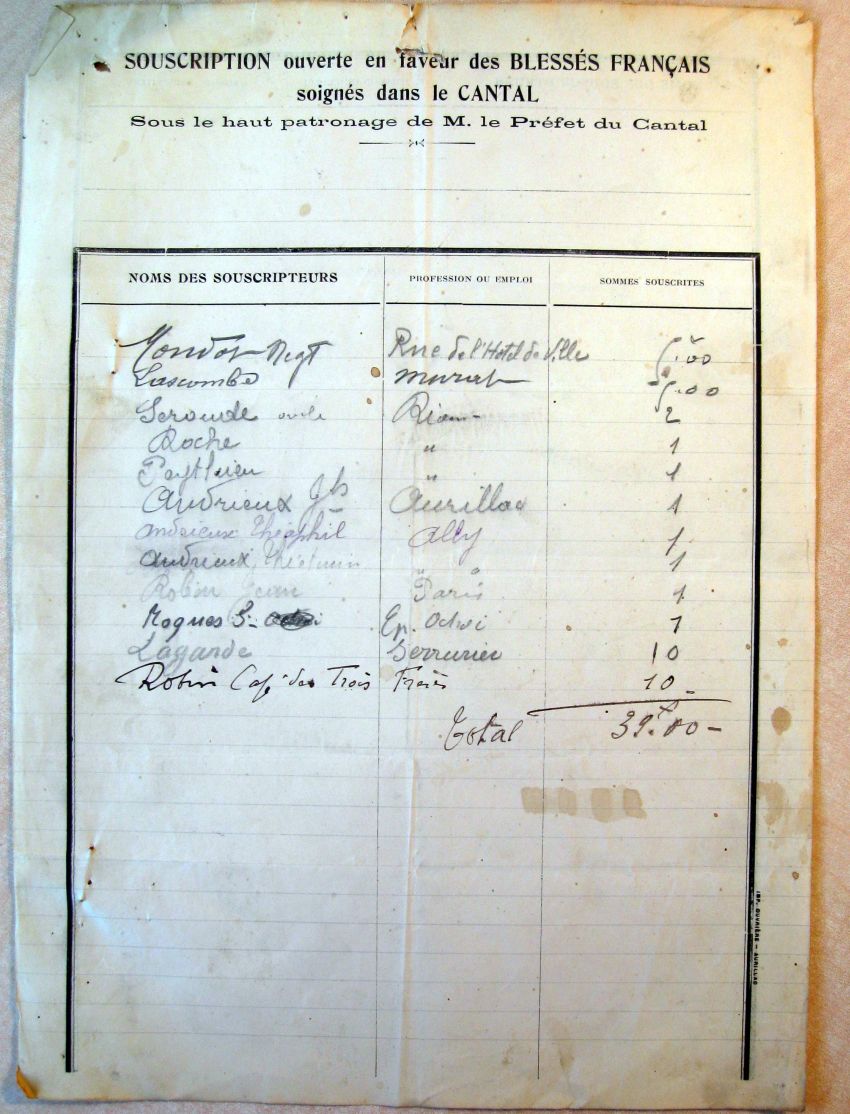 SOUSCRIPTION ouverte en faveur des BLESSÉS FRANÇAIS
soignés dans le CANTAL
Sous le haut patronage de M. le Préfet du Cantal
NOMS DES SOUSCRIPTEURS PROFESSION OU EMPLOI SOMMES SOUSCRITES
Negt Rue de l'Hotel de Ville 5.00
Lascombe Murat 5.00
2
Roche " 1
" 1
Andrieux Aurillac 1
Andrieux Théophil Ally 1
Andrieux " " 1
Robin Jean Paris 1
Roques Ep. 1
Lagarde Serrurier 10
Robin Café des Trois Frères 10
Total 39.00
IMP. OUVRIÈRE — AURILLAC